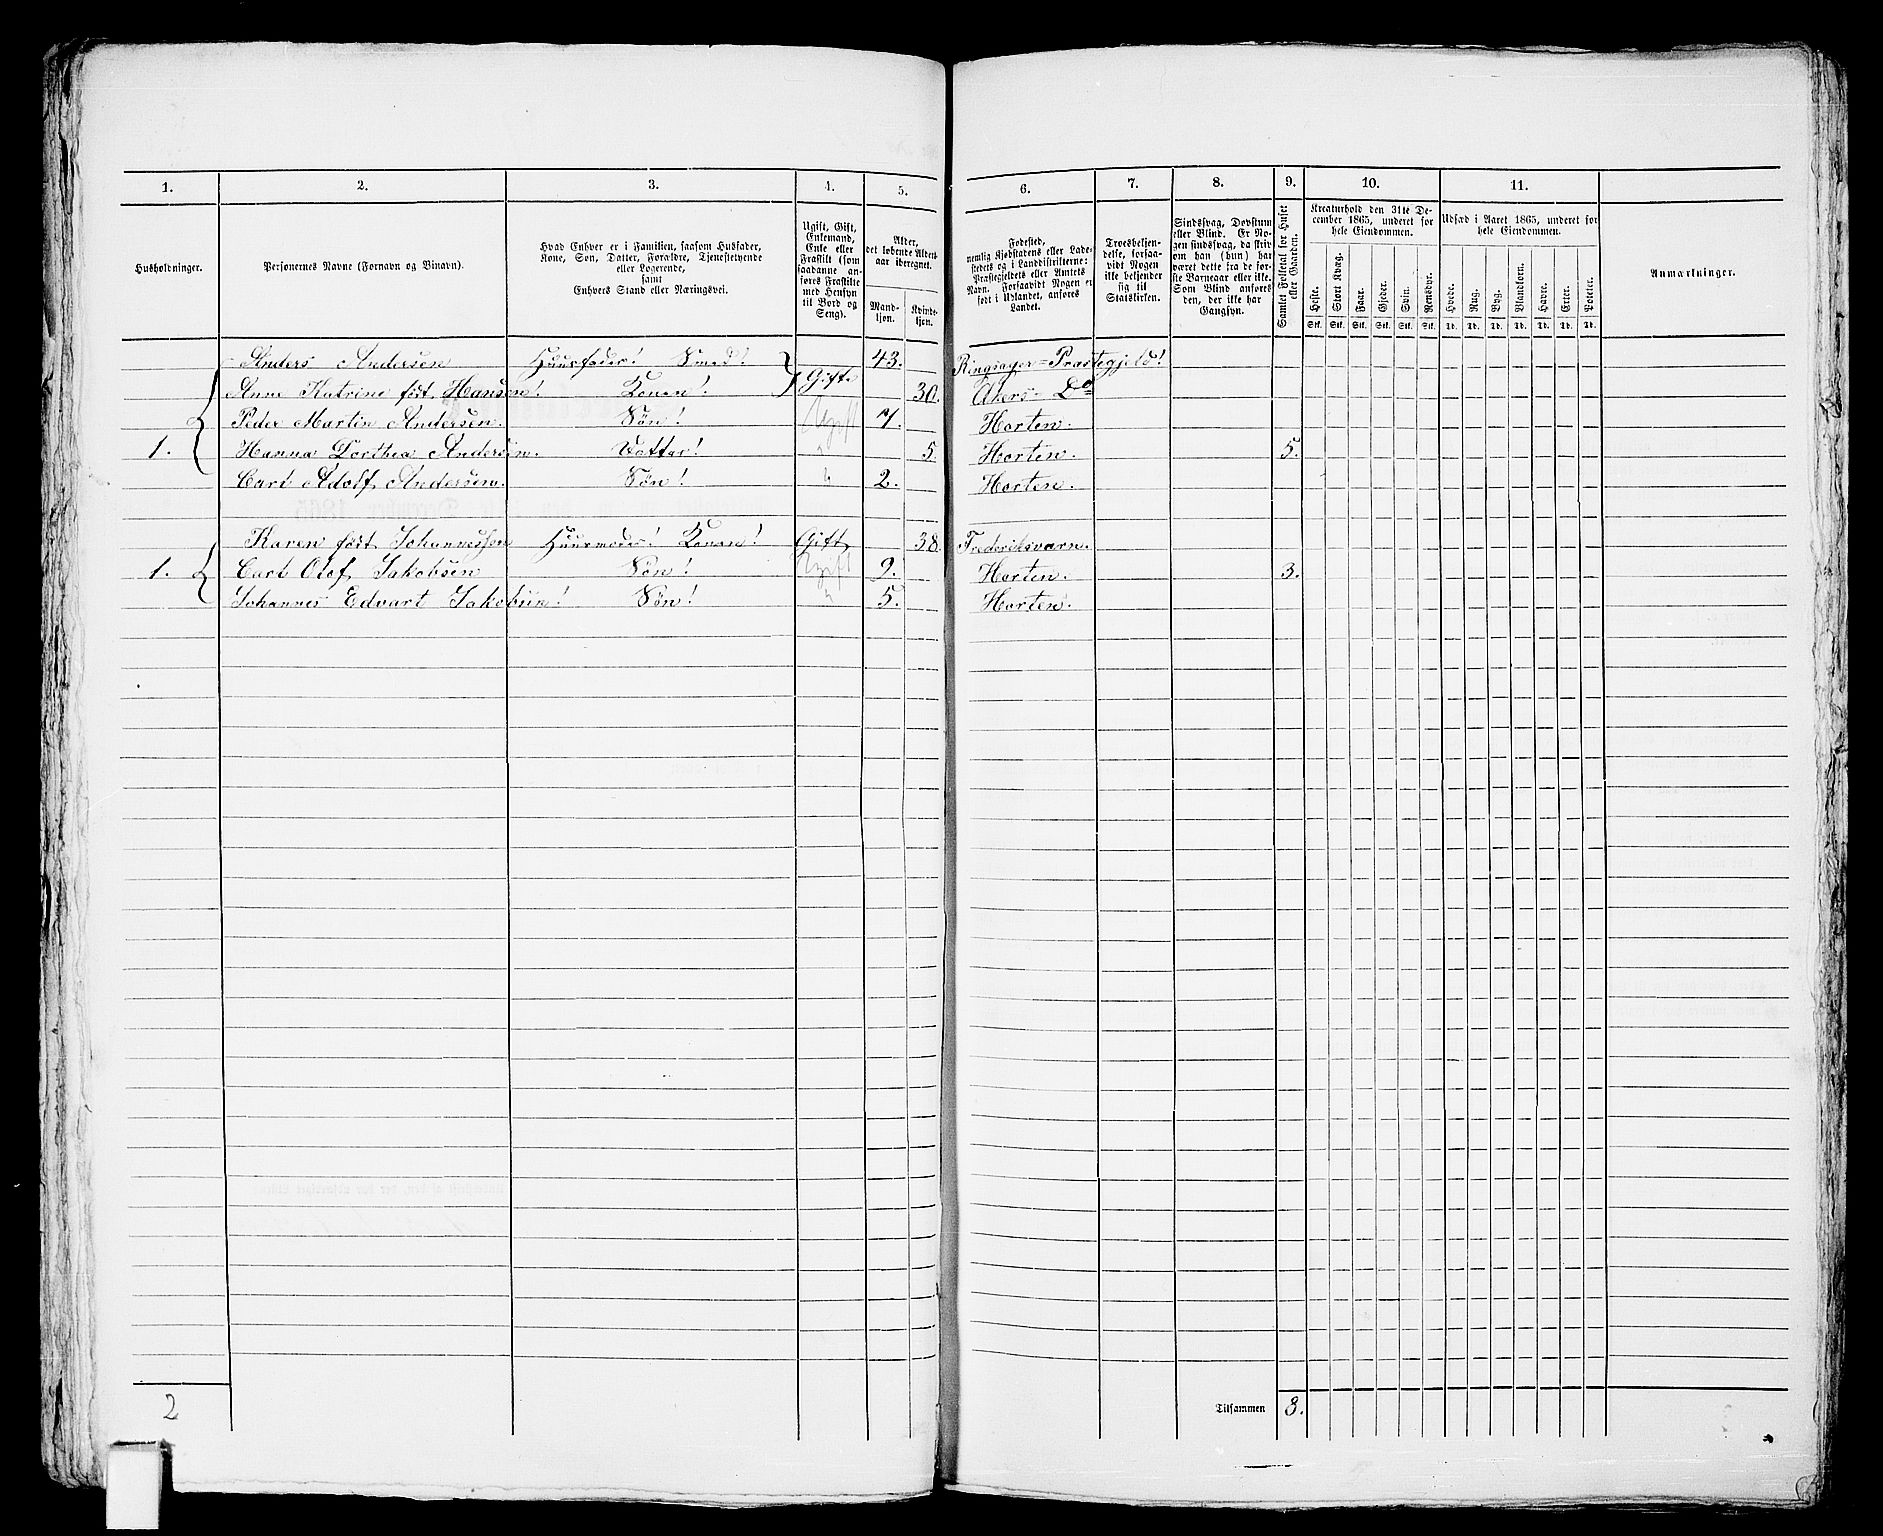 1. 2. 3. 4. 5. 6. 7. 8. 9. 10. 11.
Husholdninger.
Personernes Navne (Fornavn og Binavn).
Hvad Enhver er i Familien, saasom Husfader,
Kone, Søn, Datter, Forældre, Tjenestetyende
eller Logerende,
samt
Enhvers Stand eller Næringsvei.
Ugift, Gift,
Enkemand,
Enke eller
Fraskilt (som
saadanne an-
føres Fraskilte
med Hensyn
til Bord og
Seng).
Alder,
det løbende Alders-
aar iberegnet.
Mand-
kjøn.
Kvinde-
kjøn.
Fødested,
nemlig Kjøbstadens eller Lade-
stedets og i Landdistrikterne:
Præstegjeldets eller Amtets
Navn. Forsaavidt Nogen er
født i Udlandet, anføres
Landet.
Troesbekjen-
delse, forsaa-
vidt Nogen
ikke bekjender
sig til
Statskirken.
Sindssvag, Døvstum
eller Blind. Er No-
gen sindssvag, da skriv
om han (hun) har
været dette fra de før-
ste Barneaar eller ikke.
Som Blind anføres
den, der ikke har
Gangsyn.
Samlet Folketal for Huset
eller Gaarden.
Kreaturhold den 31te De-
cember 1865, underet for
hele Eiendommen.
Heste. Stort Kvæg. Faar. Gjeder. Svin. Rensdyr.
Stk. Stk. Stk. Stk. Stk. Stk.
Udsæd i Aaret 1865, underet for
hele Eiendommen.
Hvede. Rug. Byg. Blandkorn. Havre. Erter. Poteter.
Td. Td. Td. Td. Td. Td. Td.
Anmærkninger.
Anders Andersen Huusfader! Smed! 43. Ringsager=Præstegjeld!
Anne Katrine født Hansen! Konen! Gifte 30. Akers= Do
Peder Martin Andersen. Søn! Ugift 7. Horten.
1. Hanna Dorthea Andersen. Datter! " 5. Horten. 5.
Carl Adolf Andersen. Søn! " 2. Horten.
Karen født Johannessen Huusmoder! Konen! Gift 38. Frederiksværn.
1. Carl Olof Jakobsen Søn! Ugift 9. Horten. 3.
Johannes Edvart Jakobsen! Søn! " 5. Horten.
2 Tilsammen 8.